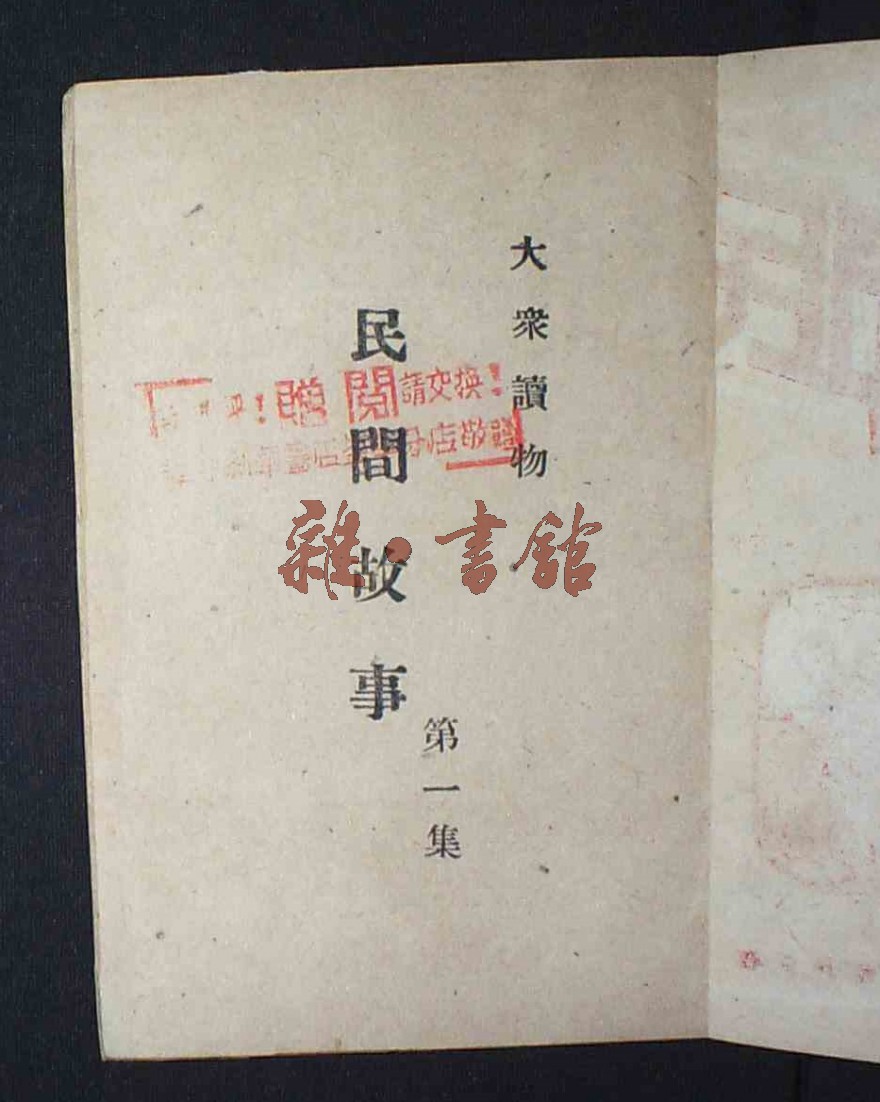 大衆讀物
民間故事
第一集
！贈閱請交換！
書店 分店敬贈
雜·書館